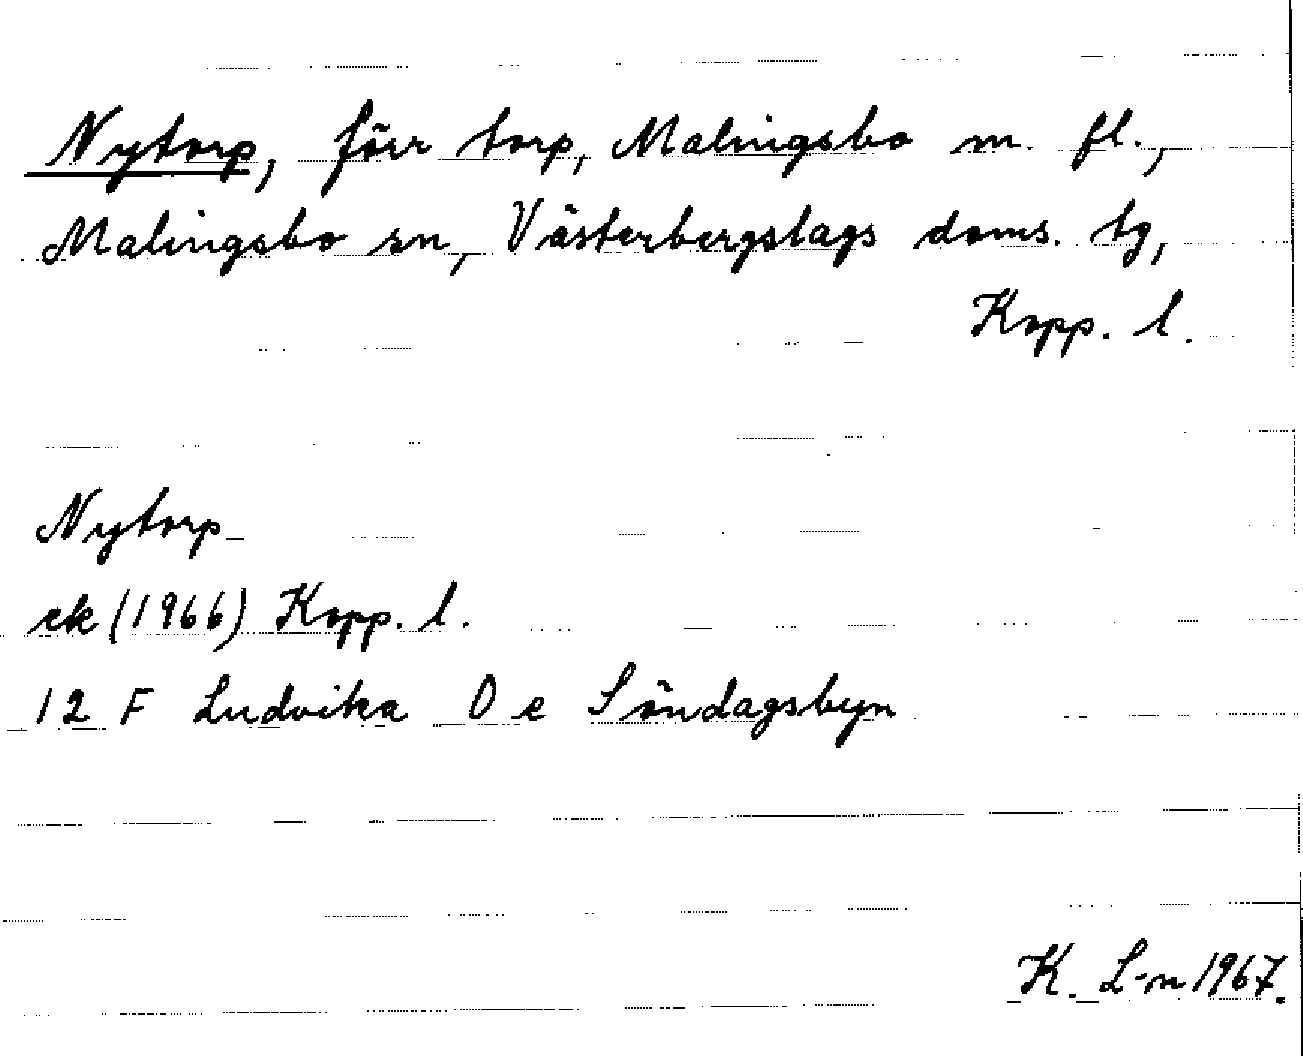 Nytorp, förr torp, Malingsbo m. fl.,
Malingsbo sn, Västerbergslags doms. tg,
Kopp. l.
Nytorp
ek (1966) Kopp. l.
12 F Ludvika 0 e Söndagsbyn
K. L-n 1967.